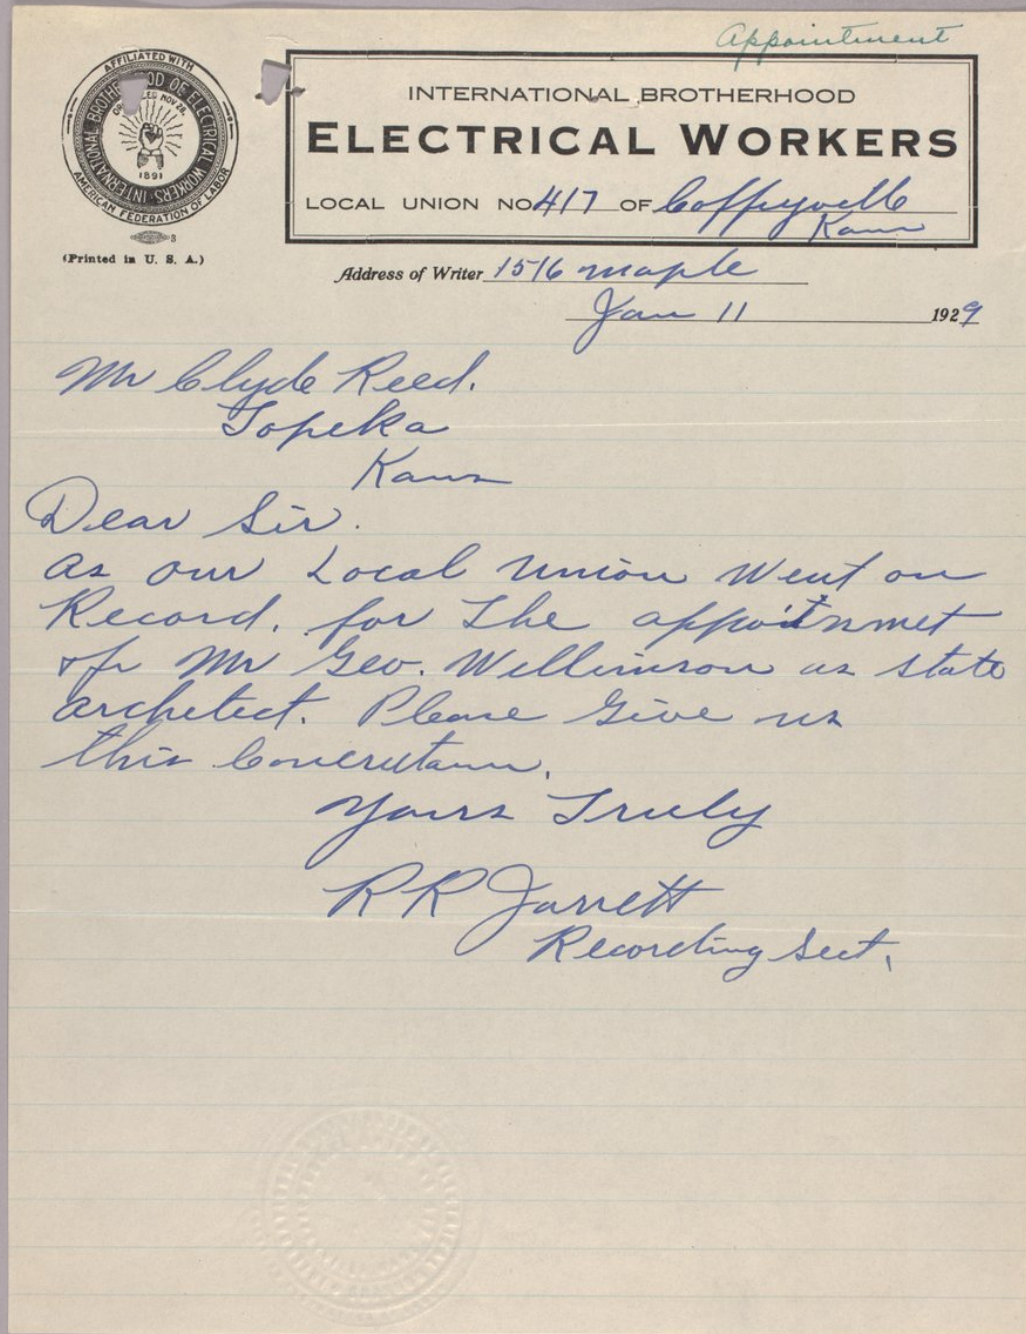 Appointment
AFFILIATED WITH
INTERNATIONAL BROTHERHOOD OF ELECTRICAL WORKERS
ORGANIZED NOV 28,
1891
AMERICAN FEDERATION OF LABOR
3
(Printed in U. S. A.)
INTERNATIONAL BROTHERHOOD
ELECTRICAL WORKERS
LOCAL UNION NO 417 OF Coffeyville
Kans
Address of Writer 1516 maple
Jan 11 1929
Mr Clyde Reed.
Topeka
Kans
Dear Sir.
as our Local union Went on
Record. for The appointnmet
of Mr Geo. Willimson as state
architect. Please Give us
this
Yours Truly
RR Jarrett
Recording Sect.